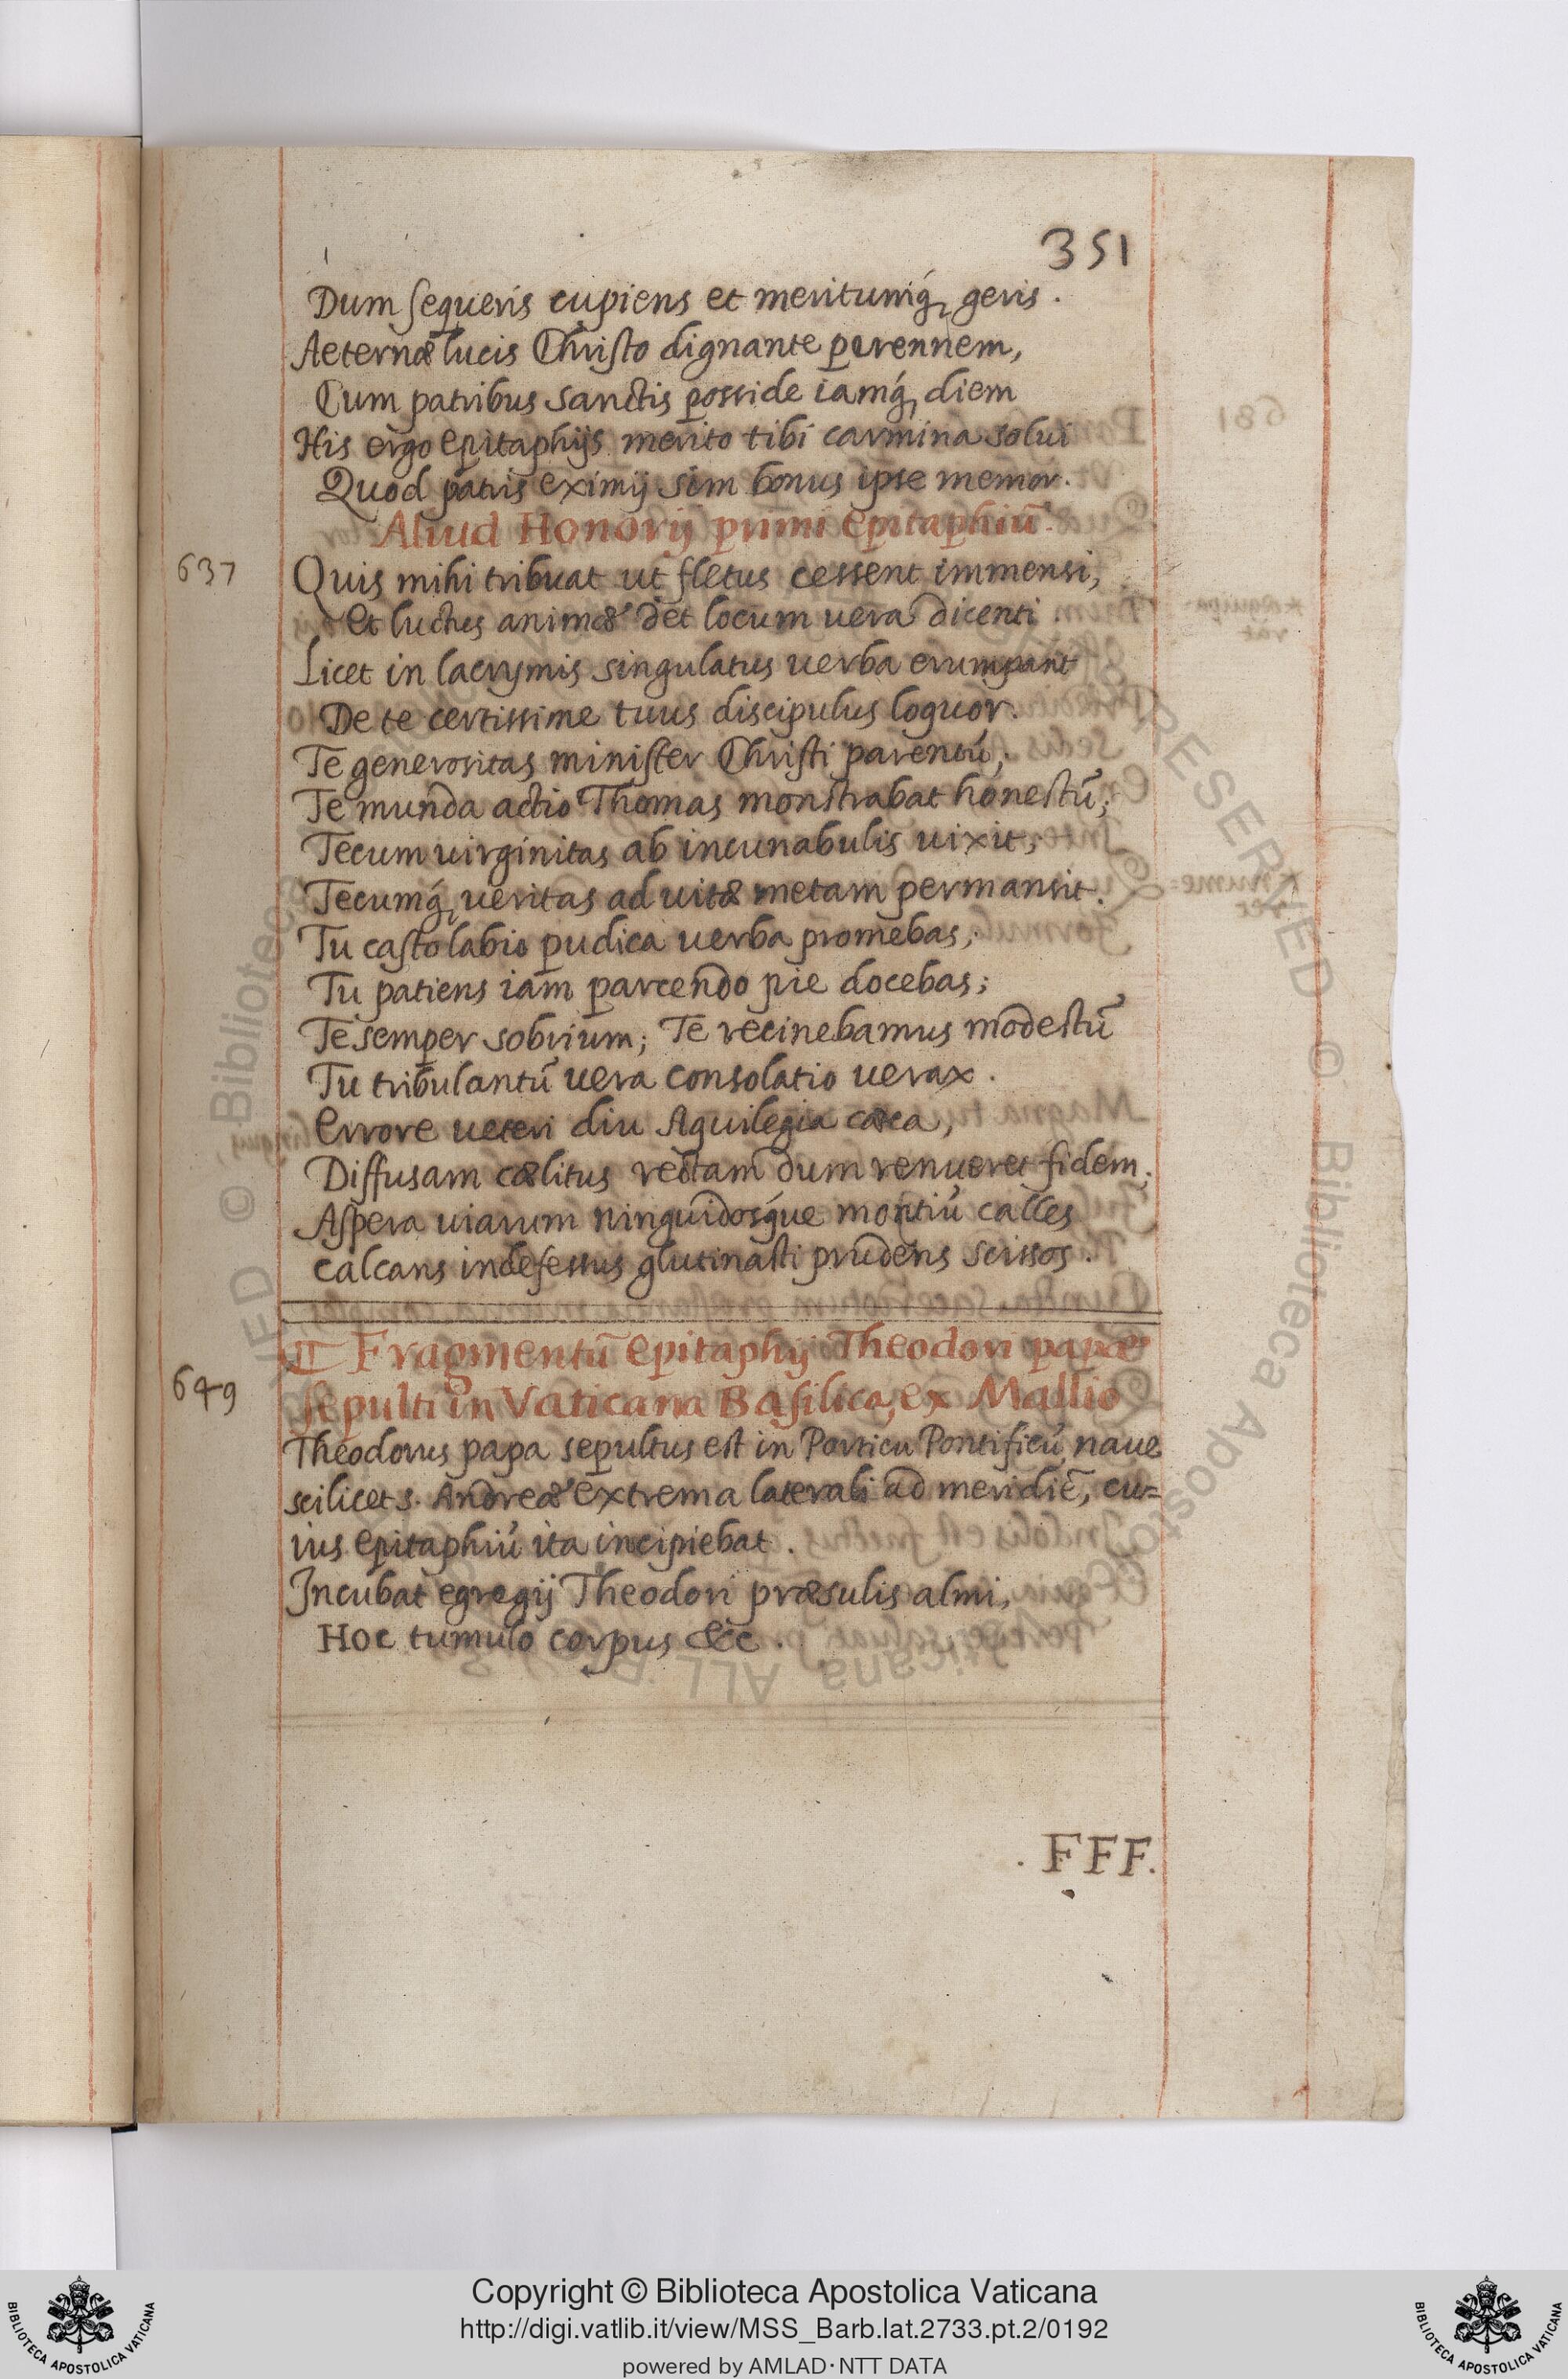 351
Dum sequeris cupiens et meritumq́, geris.
Aeternæ lucis Christo dignante perennem,
Cum patribus sanctis posside iamq́, diem
His ergo epitaphijs merito tibi carmina solui
Quod patris eximij sim bonus ipse memor.
Aliud Honorij primi epitaphiũ.
637
Quis mihi tribuat ut fletus cessent immensi,
Et luctus animæ det locum uera dicenti.
Licet in lacrymis singulatus uerba erumpant
De te certissime tuus discipulus loquor.
Te generositas minister Christi parentũ;
Te munda actio Thomas monstrabat honestũ;
Tecum uirginitas ab incunabulis uixit;
Tecumq́, ueritas ad uitæ metam permansit.
Tu casto labio pudica uerba promebas;
Tu patiens iam parcendo pie docebas;
Te semper sobrium; Te recinebamus modestũ
Tu tribulantũ uera consolatio uerax.
Errore ueteri diu Aquilegia cæca,
Diffusam cælitus rectam dum renueret fidem;
Aspera uiarum ninguidosq́ue montiũ calles
Calcans indefessus glutinasti prudens scissos.
Fragmentũ epitaphij Theodori papæ
649
sepulti in Vaticana Basilica, ex Mallio
Theodorus papa sepultus est in Porticu Pontificũ, naue
scilicet s. Andreæ extrema laterali ad meridiẽ, cu=
ius epitaphiũ ita incipiebat.
Incubat egregij Theodori præsulis almi,
Hoc tumulo corpus &c.
. FFF.
Copyright © Biblioteca Apostolica Vaticana
http://digi.vatlib.it/view/MSS_Barb.lat.2733.pt.2/0192
powered by AMLAD·NTT DATA
BIBLIOTECA APOSTOLICA VATICANA
BIBLIOTECA APOSTOLICA VATICANA